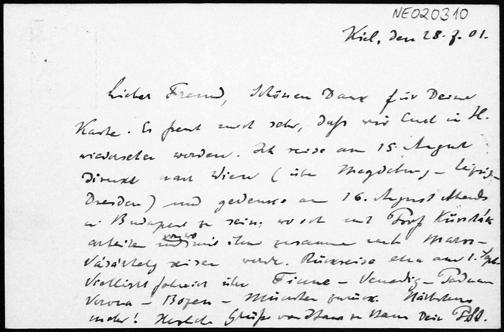 NE020310
Kiel, den 28. 7. 01.
Lieber Freund, Schönen Dank für Deine
Karte. Es freut mich sehr, daß wir Euch in H.
wiedersehen werden. Ich reise am 15 August
direkt nach Wien (über Magdeburg - Leipzig-
Dresden) und gedenke am 16. August Abends
in Budapest zu sein, wo ich mit Prof Kürschák
arbeiten und mit ihm zusammen nach Maros-
Vásárhely reisen werde. Rückreise etwa am 1. Sept
vielleicht über Fiume - Venedig - Padua
Verona - Bozen - München zurück. Nächstens
mehr! Herzliche Grüße von Haus zu Haus Dein